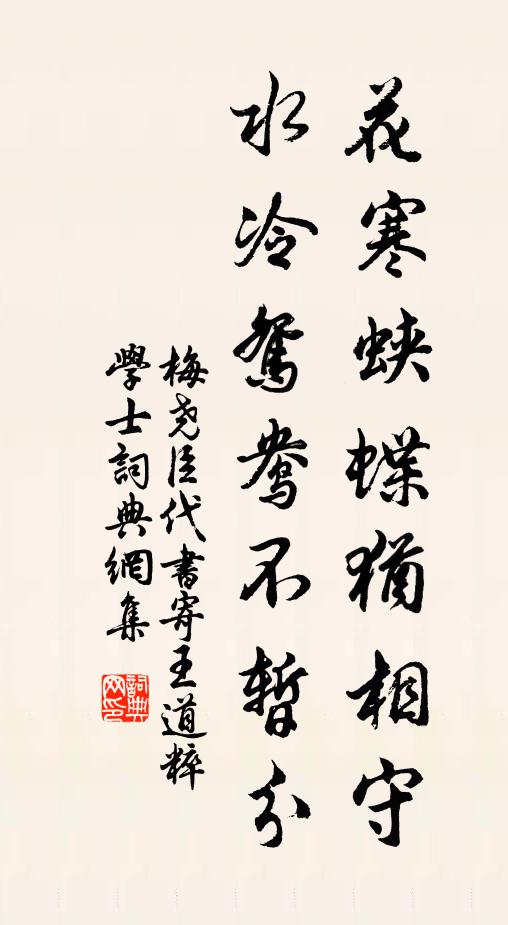 花寒蛺蝶猶相守
水冷鴛鴦不暫分
梅堯臣代書寄王道粹
學士詞典網集
詞典
网印